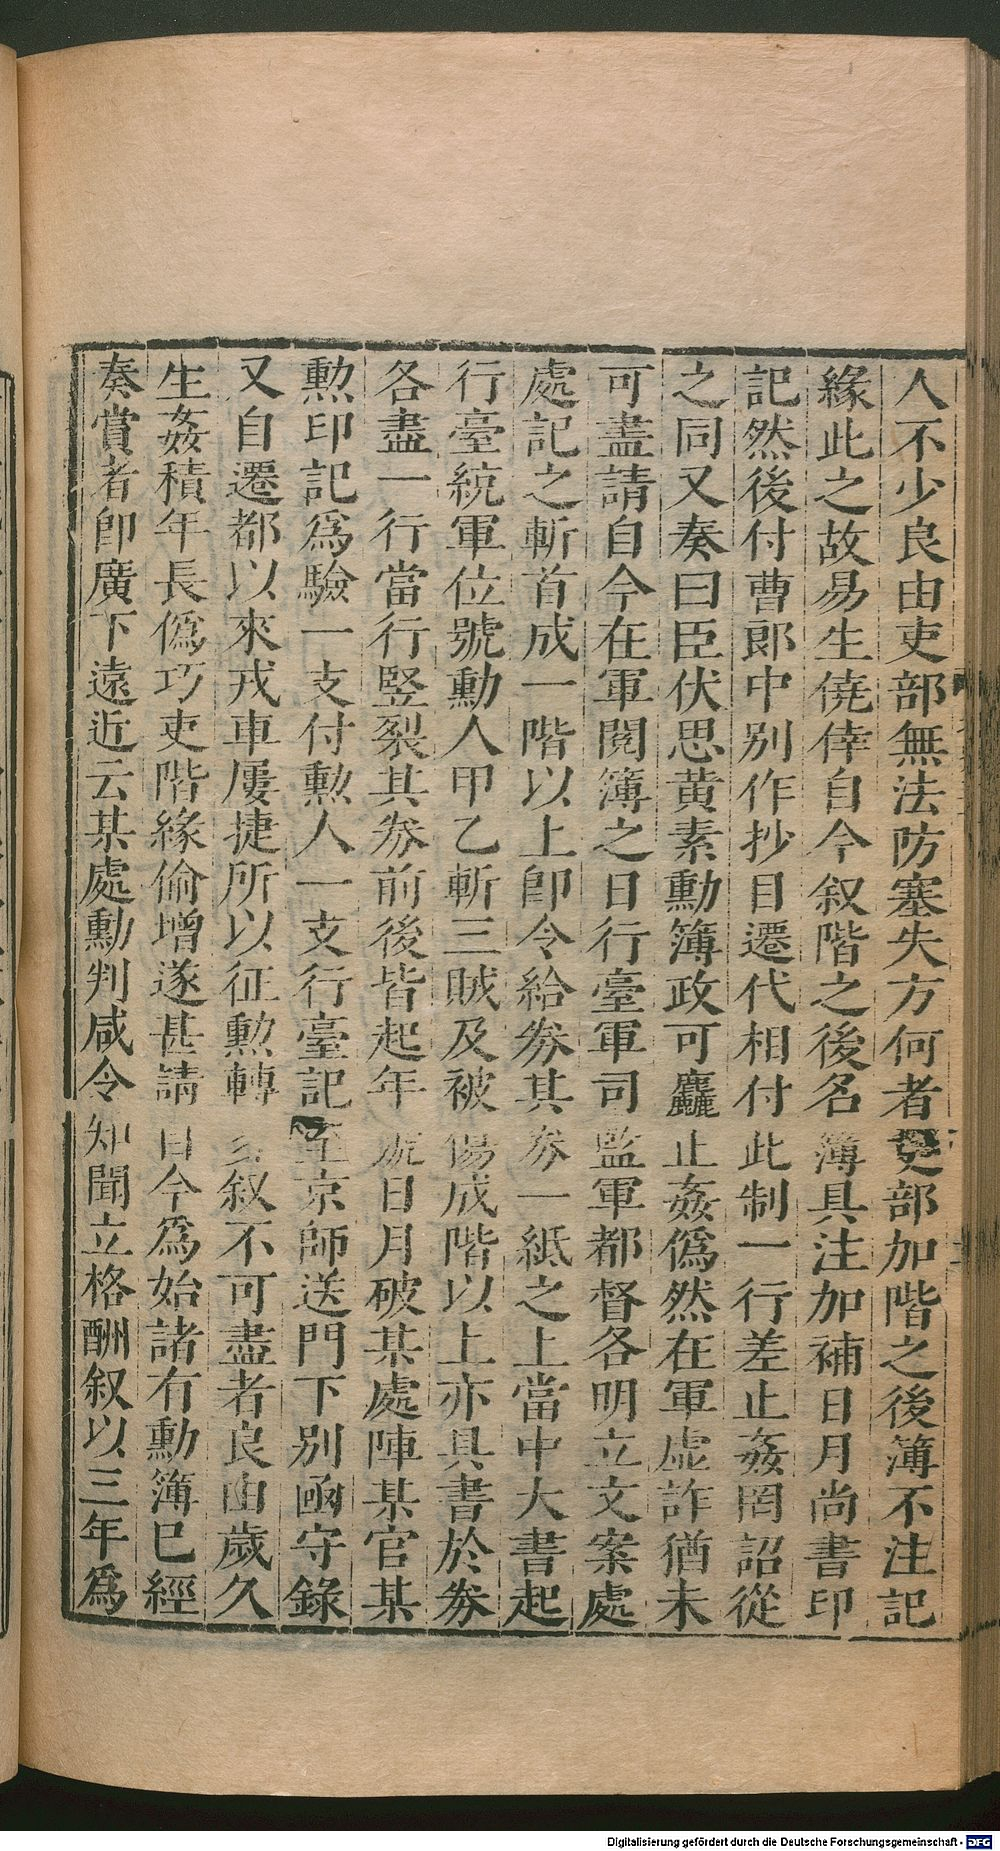 人不少良由吏部無法防塞失方何者吏部加階之後簿不注記
緣此之故易生僥倖自今叙階之後名簿具注加補日月尚書印
記然後付曹郎中別作抄目遷代相付此制一行差止姦罔詔從
之同又奏曰臣伏思黃素勳簿政可麤止姦僞然在軍虛詐猶未
可盡請自今在軍閱簿之日行臺軍司監軍都督各明立文案處
處記之斬首成一階以上卽令給券其券一紙之上當中大書起
行臺統軍位號勳人甲乙斬三賊及被傷成階以上亦具書於券
各盡一行當行竪裂其券前後皆起年號日月破某處陣某官某
勲印記爲驗一支付勲人一支行臺記至京師送門下別函守錄
又自遷都以來戎車屢捷所以征勲轉多叙不可盡者良由歲久
生姦積年長僞巧吏階緣偷增遂甚請自今爲始諸有勳簿已經
奏賞者卽廣下遠近云某處勳判咸令知聞立格酬叙以三年爲
Digitalisierung gefördert durch die Deutsche Forschungsgemeinschaft - DFG